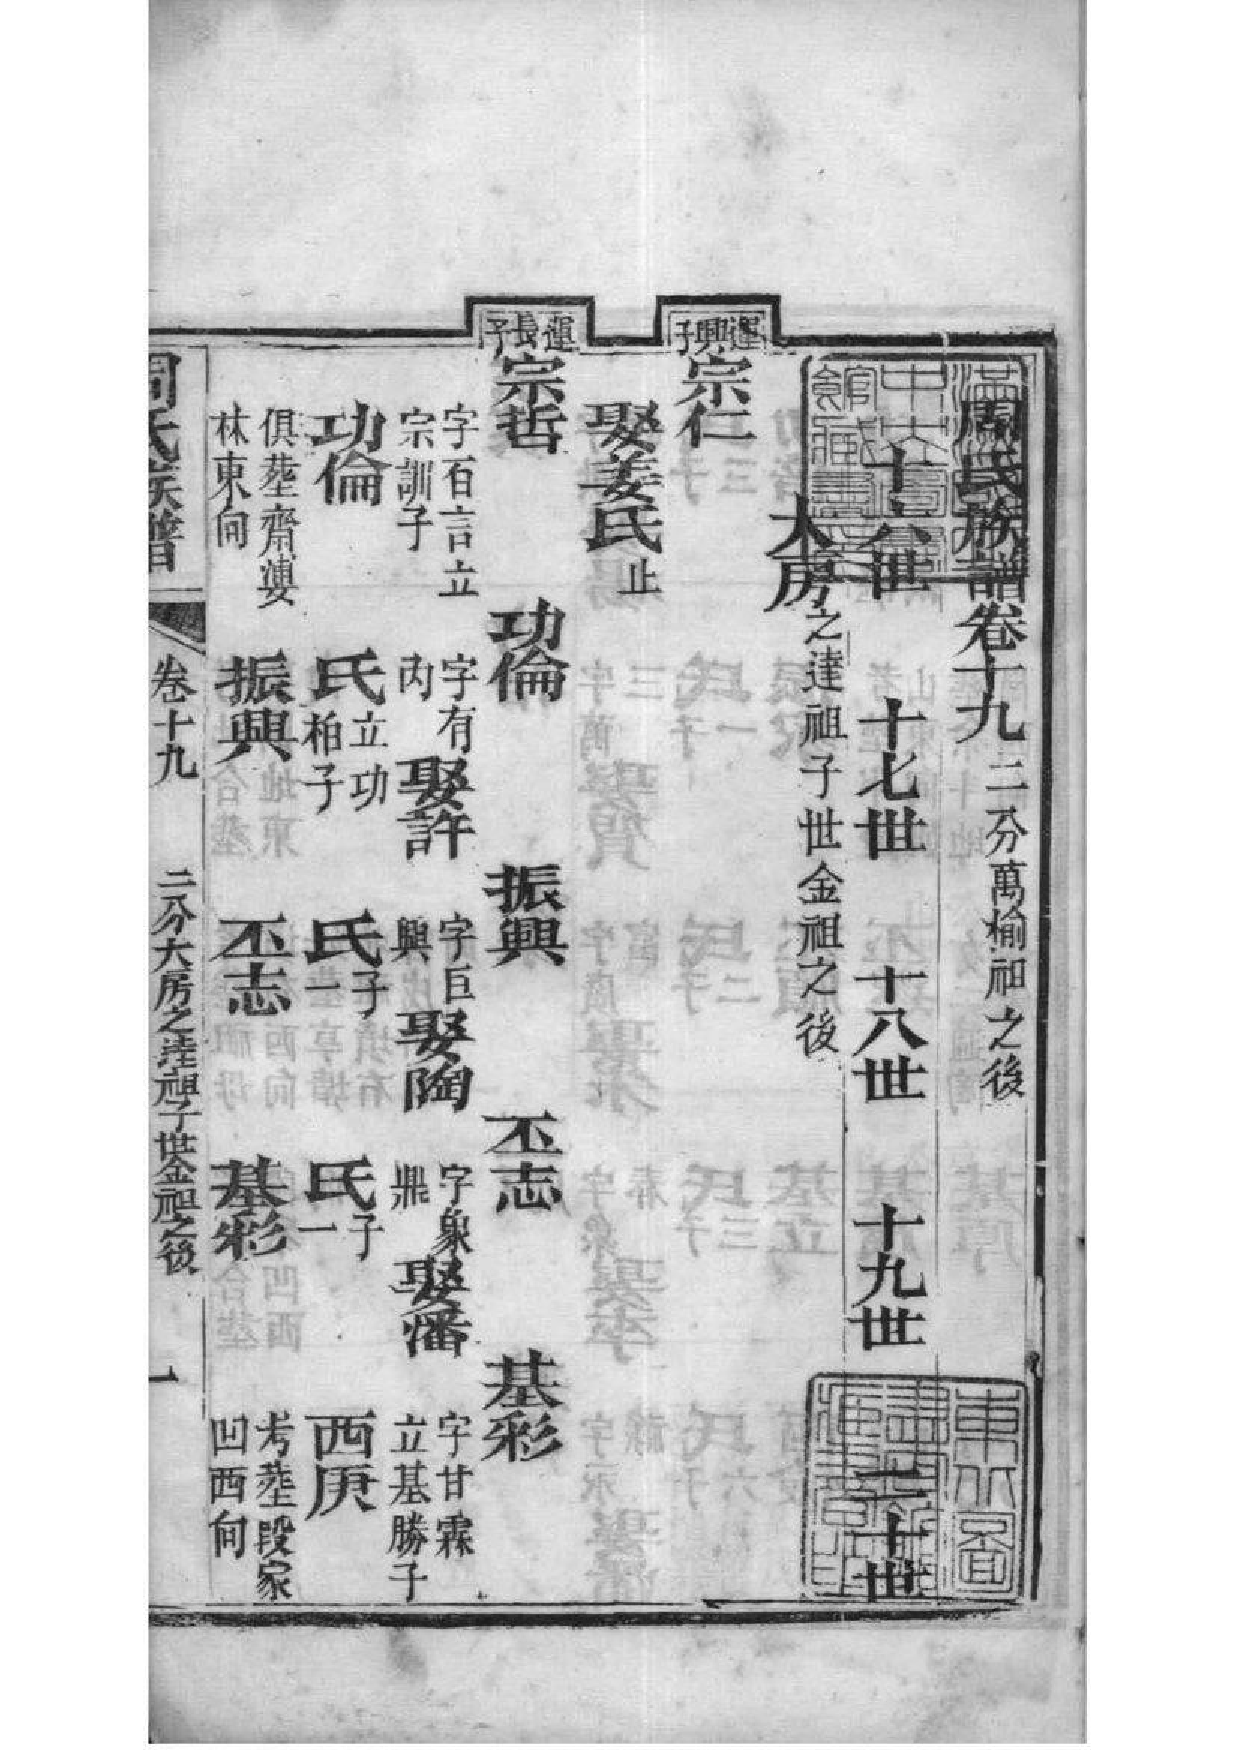 周氏族譜卷十九 二分萬榆祖之後
十六世 十七世 十八世 十九世 二十世
大房之達祖子世金祖之後
運興子
宗仁
娶姜氏止
運長子
宗哲 功倫 振興 丕志 基彩
字百言立 字有 字巨 字象 字甘霖
宗訓子 丙娶許 興娶陶 鼎娶潘 立基勝子
功倫 氏立功柏子 氏子一 氏子一 西庚
俱塟齋 考塟段家
林東向 振興 丕志 基彩 凹西向
周氏族譜 卷十九 二分大房之達祖子世金祖之後 一